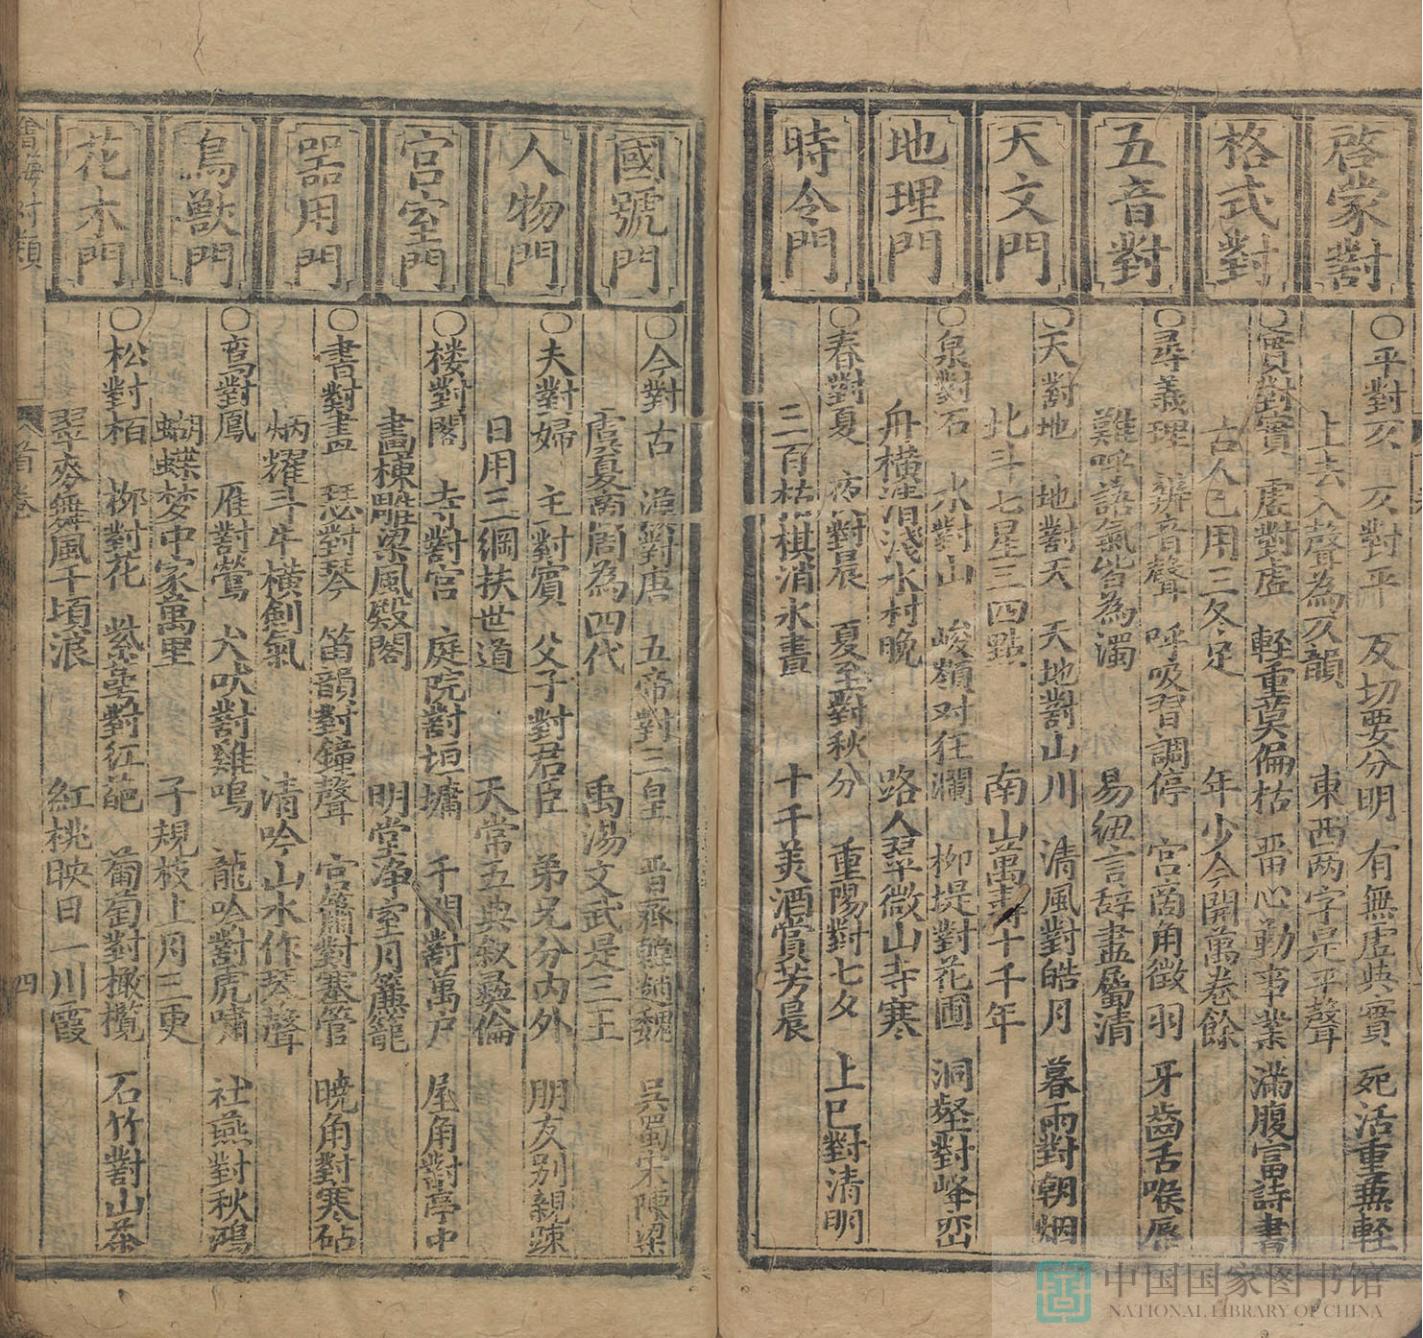 啓蒙對
○平對仄 仄對平 反切要分明 有無虛與實 死活重兼輕
上去入聲為仄韻 東西两字是平聲
格式對
○實對實 虛對虛 輕重莫偏枯 留心勤事業 滿腹富詩書
古人已用三冬足 年少今開萬卷餘
五音對
○尋義理 辨音聲 呼吸習調停 宮商角徵羽 牙齒舌喉唇
難呼語氣皆為濁 易紐言辞盡屬清
天文門
○天對地 地對天 天地對山川 清風對皓月 暮雨對朝烟
北斗七星三四點 南山萬壽十千年
地理門
○泉對石 水對山 峻嶺对狂瀾 柳堤對花圃 洞壑對峰巒
舟橫清淺水村晚 路入翠微山寺寒
時令門
○春對夏 夜對晨 夏至對秋分 重陽對七夕 上巳對清明
三百枯棋消永晝 十千美酒賞芳晨
國號門
○今對古 漢對唐 五帝對三皇 晋齊韓趙魏 吳蜀宋陳梁
虞夏商周為四代 禹湯文武是三王
人物門
○夫對婦 主對賓 父子對君臣 弟兄分内外 朋友别親疎
日用三綱扶世道 天常五典叙彞倫
宫室門
○楼對閣 寺對宫 庭院對垣墉 千門對萬户 屋角對亭中
畫棟雕梁風殿閣 明堂净室月簾籠
器用門
○書對畫 瑟對琴 笛韻對鐘聲 宫簫對塞管 曉角對寒砧
炳耀斗牛橫劍氣 清吟山水作琴聲
鳥獸門
○鸾對鳳 雁對鶯 犬吠對雞鳴 龍吟對虎嘯 社燕對秋鴻
蝴蝶梦中家萬里 子規枝上月三更
花木門
○松對栢 柳對花 紫萼對紅葩 葡萄對橄欖 石竹對山茶
翠麥舞風千頃浪 紅桃映日一川霞
對類
首卷
四
中国国家图书馆
NATIONAL LIBRARY OF CHINA